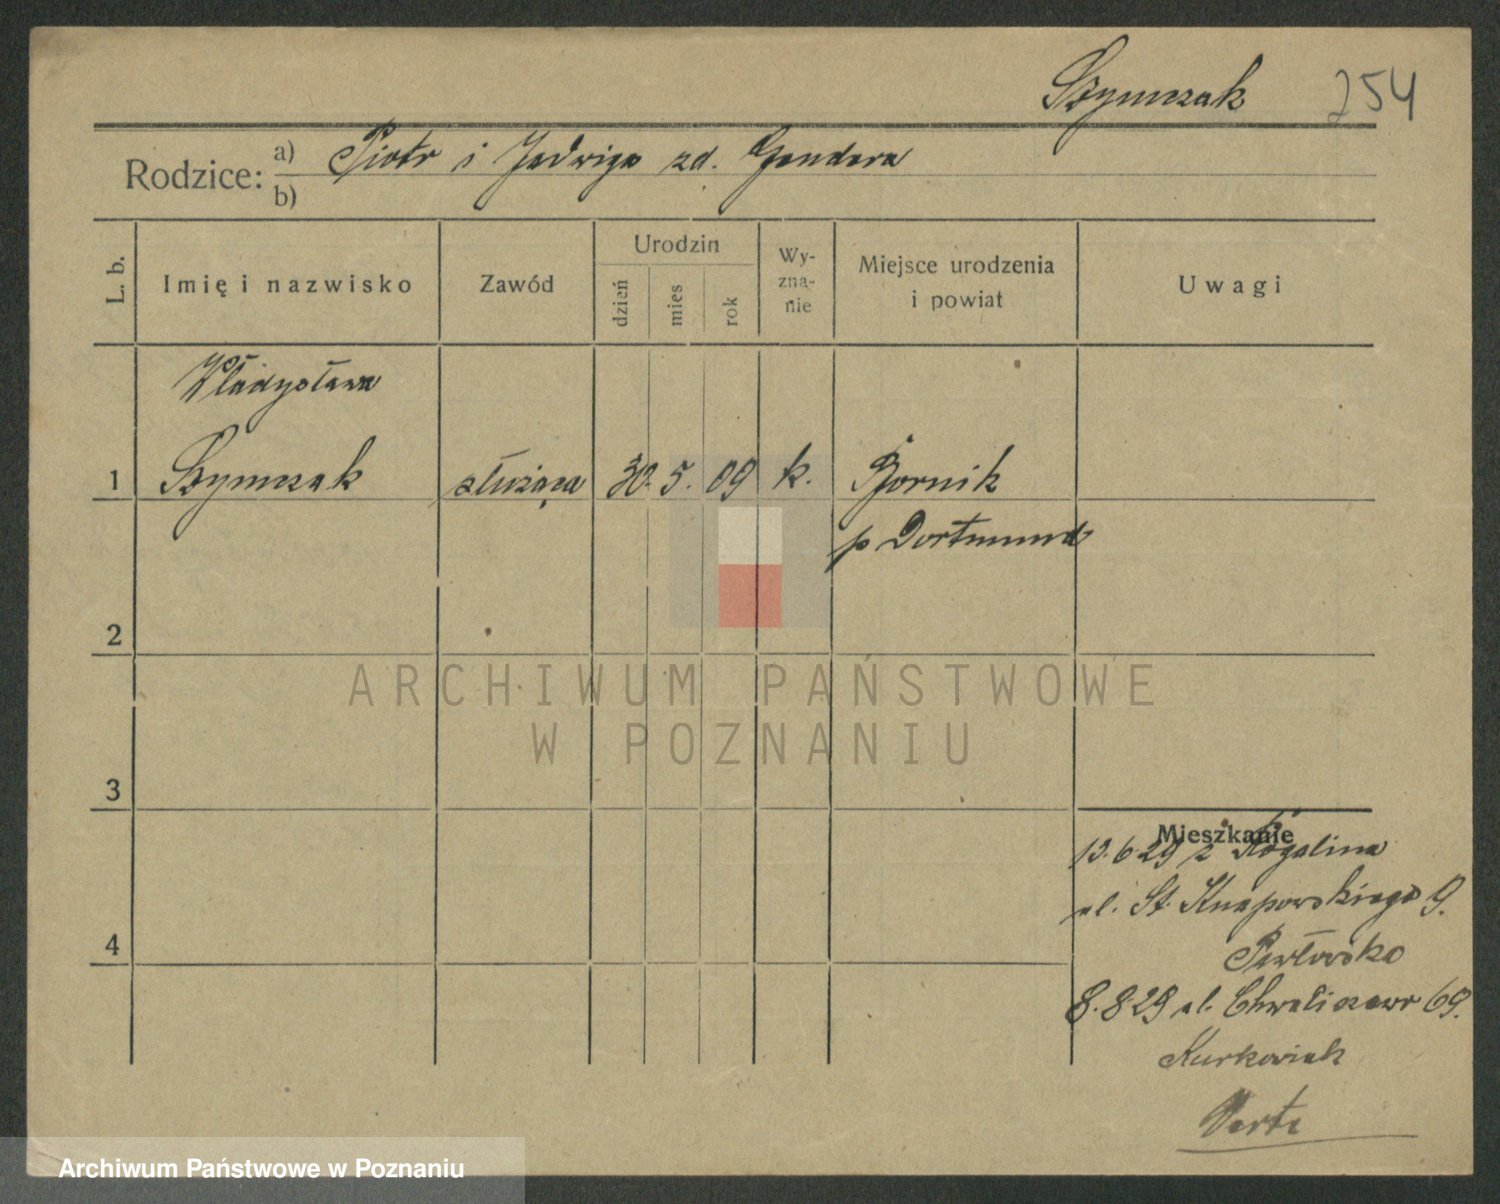 Szymczak 254
Rodzice: a) Piotr i Jadwiga zd. Gendera
b)
L. b.
Imię i nazwisko
Zawód
Urodzin
dzień
mies
rok
Wy-
zna-
nie
Miejsce urodzenia
i powiat
Uwagi
Władysława
1 Szymczak służąca 30. 5. 09 k. Bornik
p Dortmund
2
3
4
Mieszkanie
13.6.29 z Rogalina
ul. St. Knapowskiego 9.
Pawłowska
8.8.29 ul. Chwaliszewo 69.
Kurkowiak
Verte
ARCHIWUM PAŃSTWOWE
W POZNANIU
Archiwum Państwowe w Poznaniu